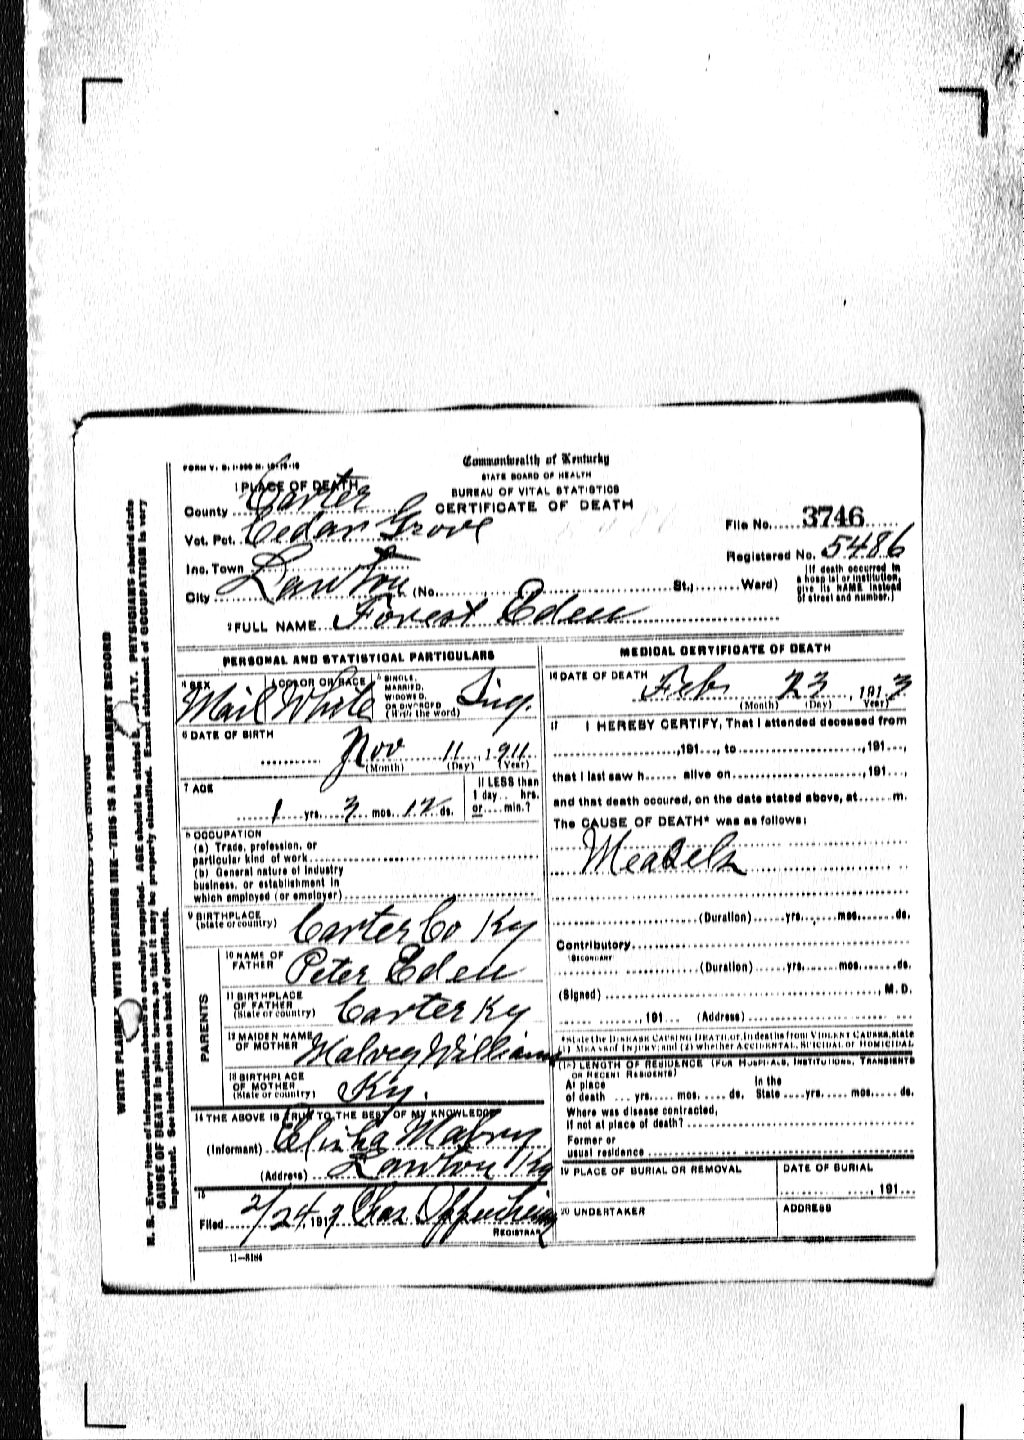 FORM V. S. 1-
Commonwealth of Kentucky
STATE BOARD OF HEALTH
BUREAU OF VITAL STATISTICS
CERTIFICATE OF DEATH
1 PLACE OF DEATH
County Carter
Vot. Pct. Cedar Grove
Inc. Town
City Lawton (No. St.; Ward)
File No. 3746
Registered No. 5486
(If death occurred in a hospital or institution, give its NAME instead of street and number.)
2 FULL NAME Forest Eden
PERSONAL AND STATISTICAL PARTICULARS
SEX Mail
COLOR OR RACE White
SINGLE, MARRIED, WIDOWED, OR DIVORCED (Write the word) Sing.
6 DATE OF BIRTH
Nov 11, 1911
(Month) (Day) (Year)
7 AGE
1 yrs. 3 mos. 12 ds.
If LESS than 1 day hrs. or min.?
8 OCCUPATION
(a) Trade, profession, or particular kind of work
(b) General nature of industry business, or establishment in which employed (or employer)
9 BIRTHPLACE (State or country) Carter Co Ky
PARENTS
10 NAME OF FATHER Peter Eden
11 BIRTHPLACE OF FATHER (State or country) Carter Ky
12 MAIDEN NAME OF MOTHER Malvey Williams
13 BIRTHPLACE OF MOTHER (State or country) Ky.
14 THE ABOVE IS TRUE TO THE BEST OF MY KNOWLEDGE
(Informant) Elisha Malvry
(Address) Lawton Ky
15
Filed 2/24, 191 Chas Oppenheimer
REGISTRAR
MEDICAL CERTIFICATE OF DEATH
16 DATE OF DEATH Feb 23, 1913
(Month) (Day) (Year)
17 I HEREBY CERTIFY, That I attended deceased from
,191..., to ,191...,
that I last saw h alive on ,191...,
and that death occured, on the date stated above, at m.
The CAUSE OF DEATH* was as follows:
Measels
(Duration) yrs. mos. ds.
Contributory
SECONDARY
(Duration) yrs. mos. ds.
(Signed) , M.D.
, 191... (Address)
*State the DISEASE CAUSING DEATH, or, in deaths from VIOLENT CAUSES, state
(1) MEANS OF INJURY; and (2) whether ACCIDENTAL, SUICIDAL or HOMICIDAL
(18) LENGTH OF RESIDENCE (FOR HOSPITALS, INSTITUTIONS, TRANSIENTS OR RECENT RESIDENTS)
At place of death yrs. mos. ds. In the State yrs. mos. ds.
Where was disease contracted,
if not at place of death?
Former or
usual residence
19 PLACE OF BURIAL OR REMOVAL
DATE OF BURIAL
, 191...
20 UNDERTAKER
ADDRESS
MARGIN RESERVED FOR BINDING
WRITE PLAINLY WITH UNFADING INK—THIS IS A PERMANENT RECORD
N. B.—Every item of information should be carefully supplied. AGE should be stated EXACTLY. PHYSICIANS should state
CAUSE OF DEATH in plain terms, so that it may be properly classified. Exact statement of OCCUPATION is very
important. See instructions on back of certificate.